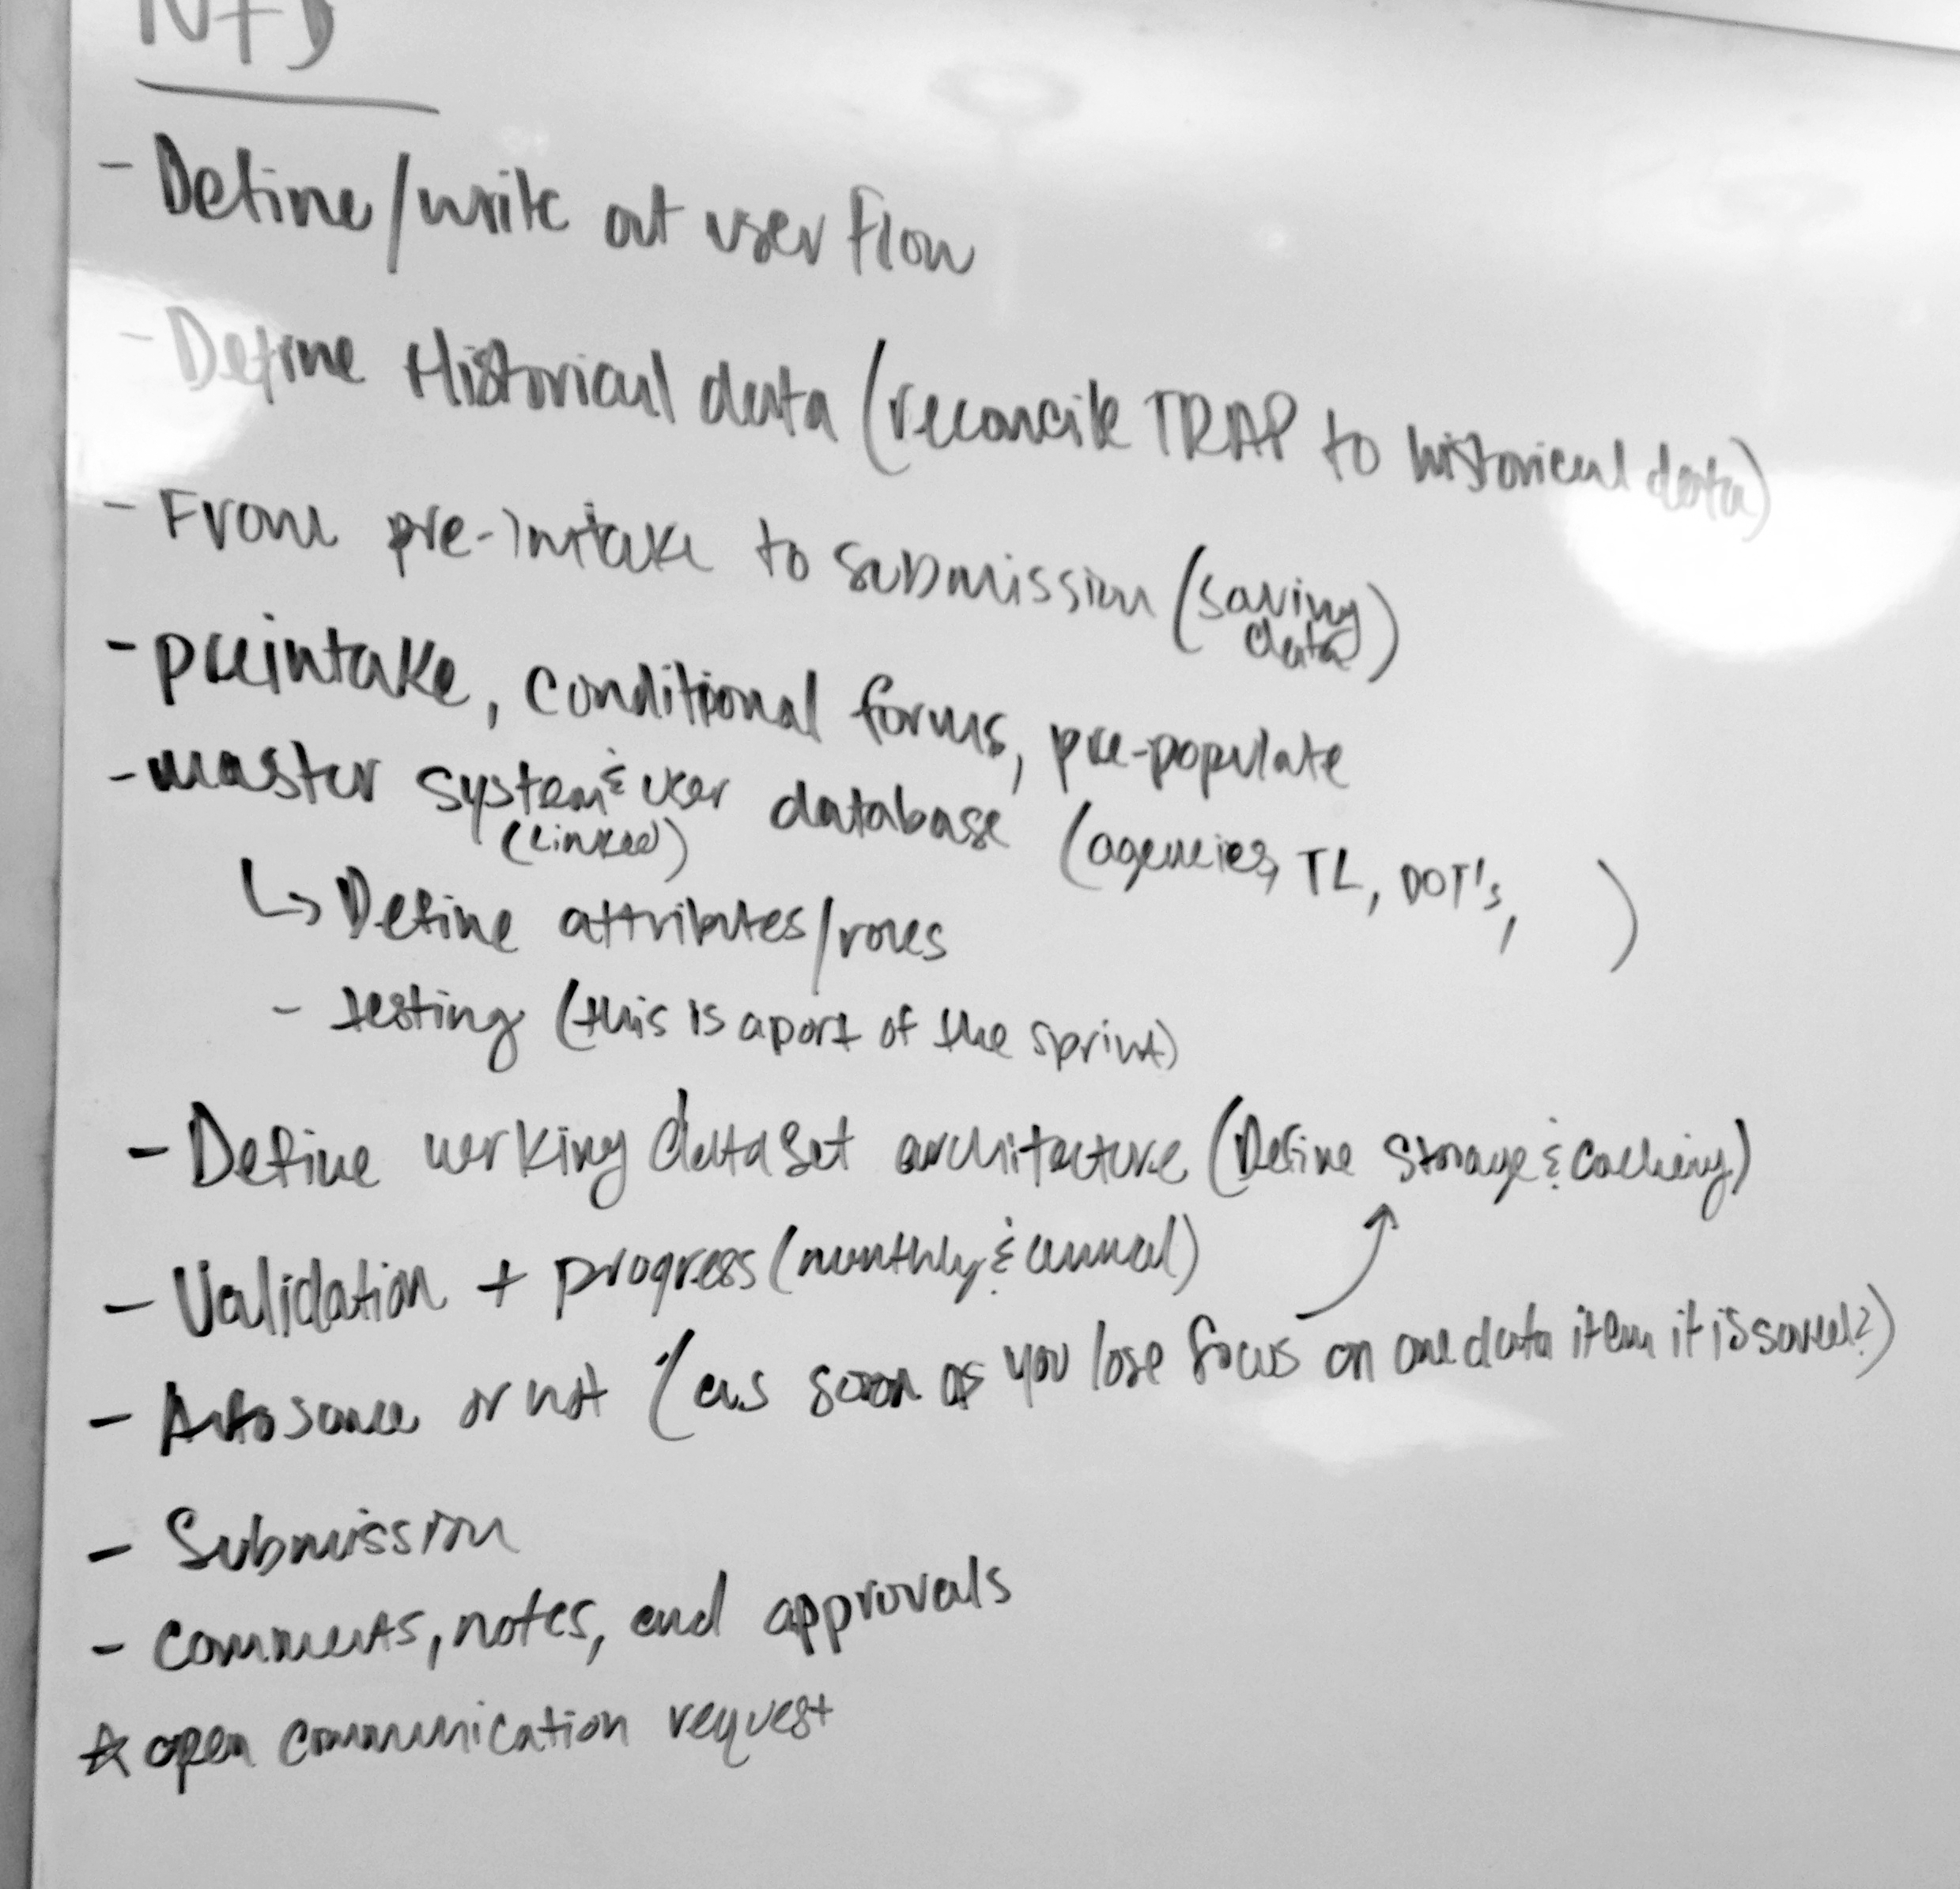 - Define/write out user flow
- Define Historical data (reconcile TRAP to historical data)
- From pre-intake to submission (saving data)
- preintake, conditional forms, pre-populate
- master system & user database (agencies, TL, DOT's, )
(Linked)
↳ Define attributes/roles
- testing (this is a part of the sprint)
- Define working dataset architecture (Define Storage & caching)
- Validation + progress (monthly & annual)
- Autosave or not (as soon as you lose focus on one data item it is saved?)
- Submission
- comments, notes, and approvals
☆ open communication request